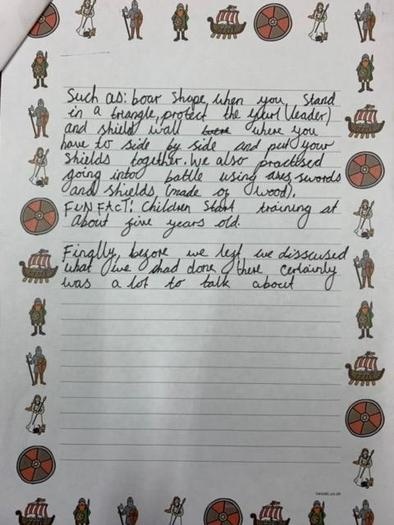 Such as: boar shape, when you stand
in a triangle, protect the yarl (leader)
and shield wall where you
have to side by side and put your
shields together. We also practised
going into battle using axes, swords
and shields, (made of wood).
FUN FACT! Children start training at
about five years old.
Finally, before we left we disscused
what we had done, there certainly
was a lot to talk about